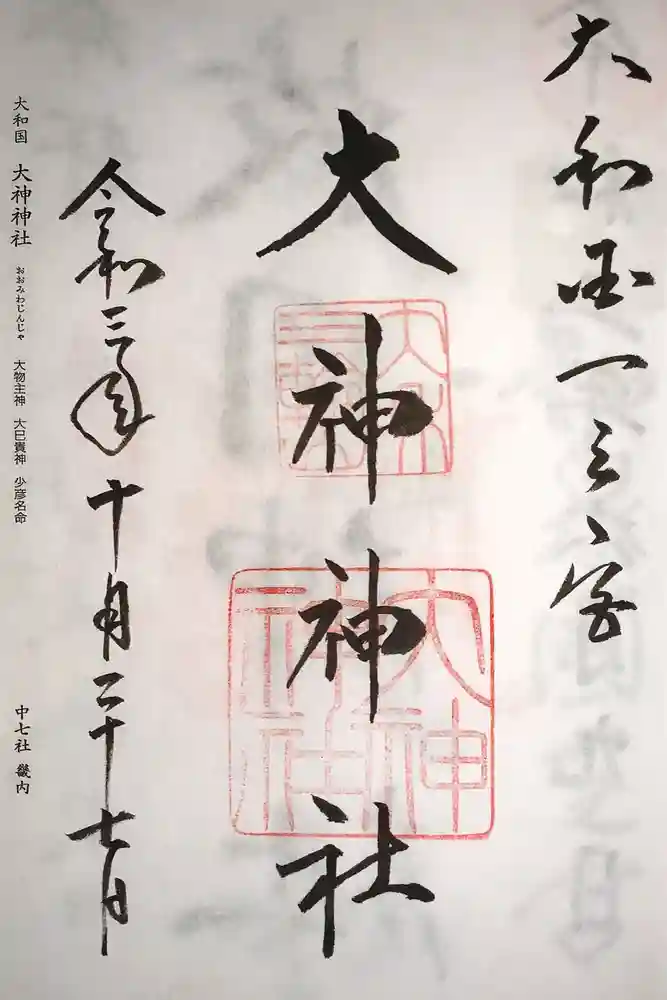 大和国一之宮
大神神社
大美和
三輪
大神
神社
令和三年十月二十七日
大和国 大神神社 おおみわじんじゃ 大物主神 大巳貴神 少彦名命 中七社 畿内